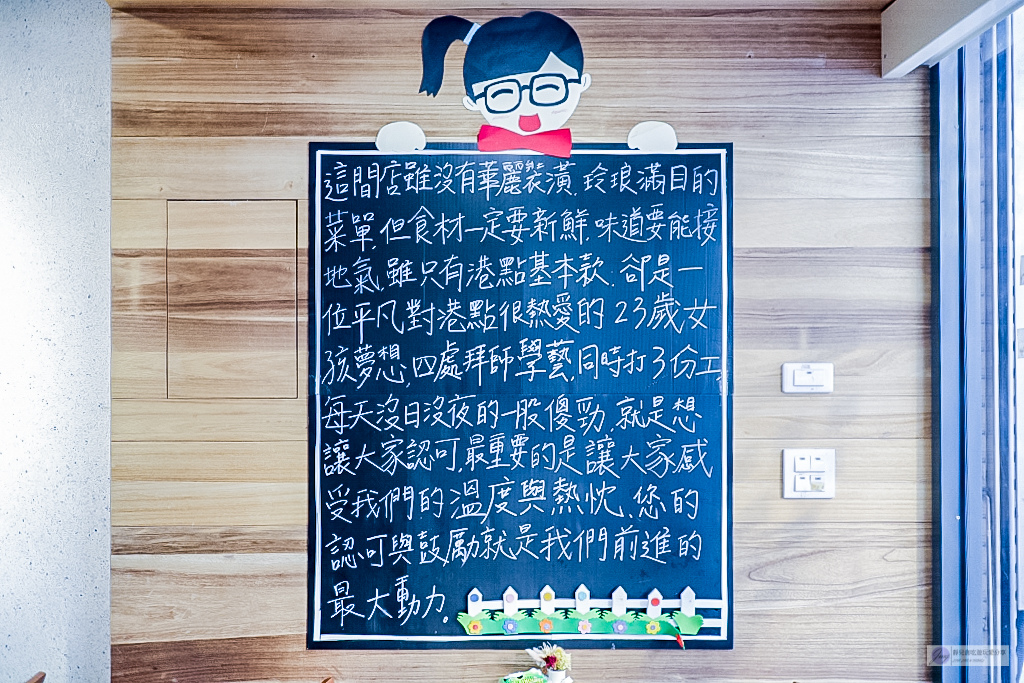 這間店雖沒有華麗裝潢,玲琅滿目的
菜單,但食材一定要新鮮,味道要能接
地氣,雖只有港點基本款,卻是一
位平凡對港點很熱愛的23歲女
孩夢想,四處拜師學藝,同時打3份工
每天沒日沒夜的一股傻勁,就是想
讓大家認可,最重要的是讓大家感
受我們的溫度與熱忱,您的
認可與鼓勵就是我們前進的
最大動力。